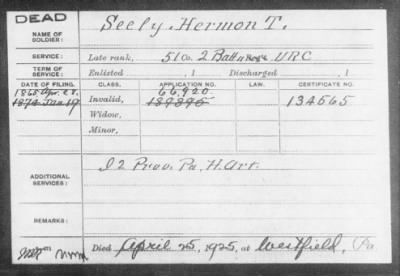 DEAD
NAME OF SOLDIER: Seely, Hermon T.
SERVICE: Late rank, 51 Co. 2 Batt. Reg't VRC
TERM OF SERVICE: Enlisted , 1 Discharged , 1
DATE OF FILING. CLASS. APPLICATION NO. LAW. CERTIFICATE NO.
1865 Apr. 28. Invalid, 66,920 134565
1874 Jan 19 189895
Widow,
Minor,
ADDITIONAL SERVICES: I 2 Prov. Pa. H. Art.
REMARKS:
Died April 25, 1925, at Westfield, Pa